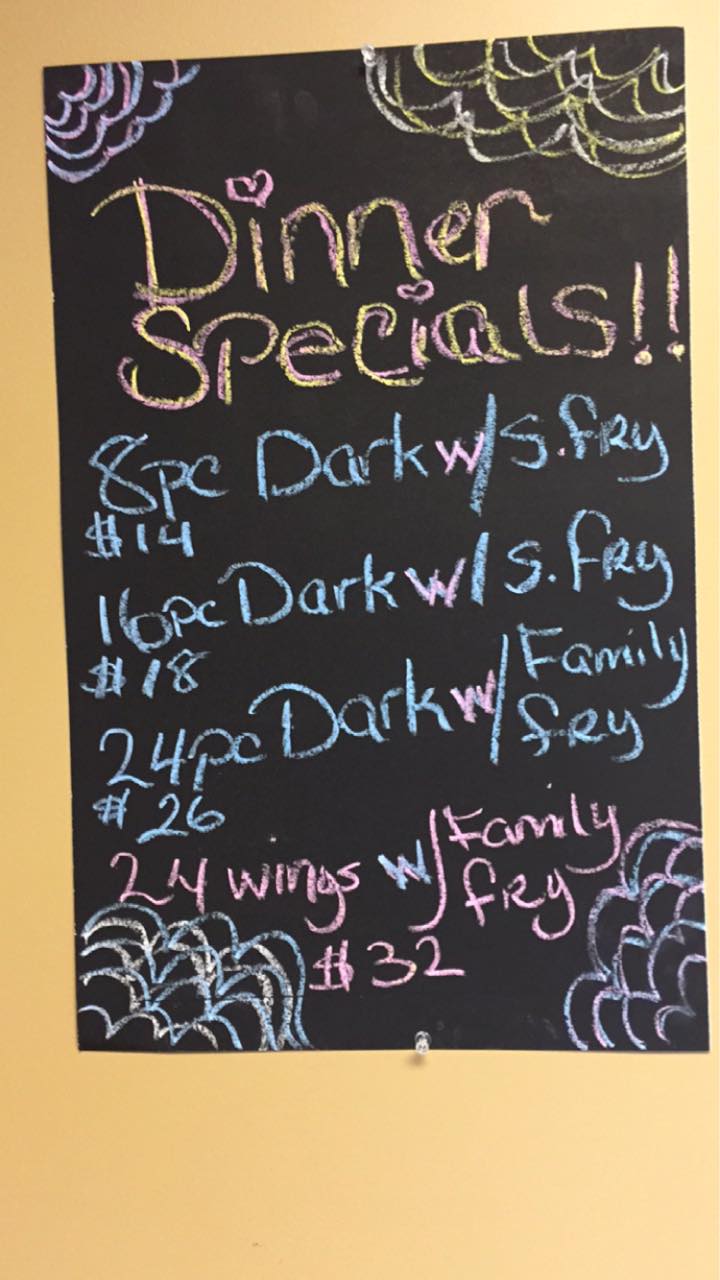 Dinner
Specials!!
8pc Dark w/ S. fry
$14
16pc Dark w/ S. fry
$18
24pc Dark w/ Family fry
$26
24 wings w/ Family fry
$32